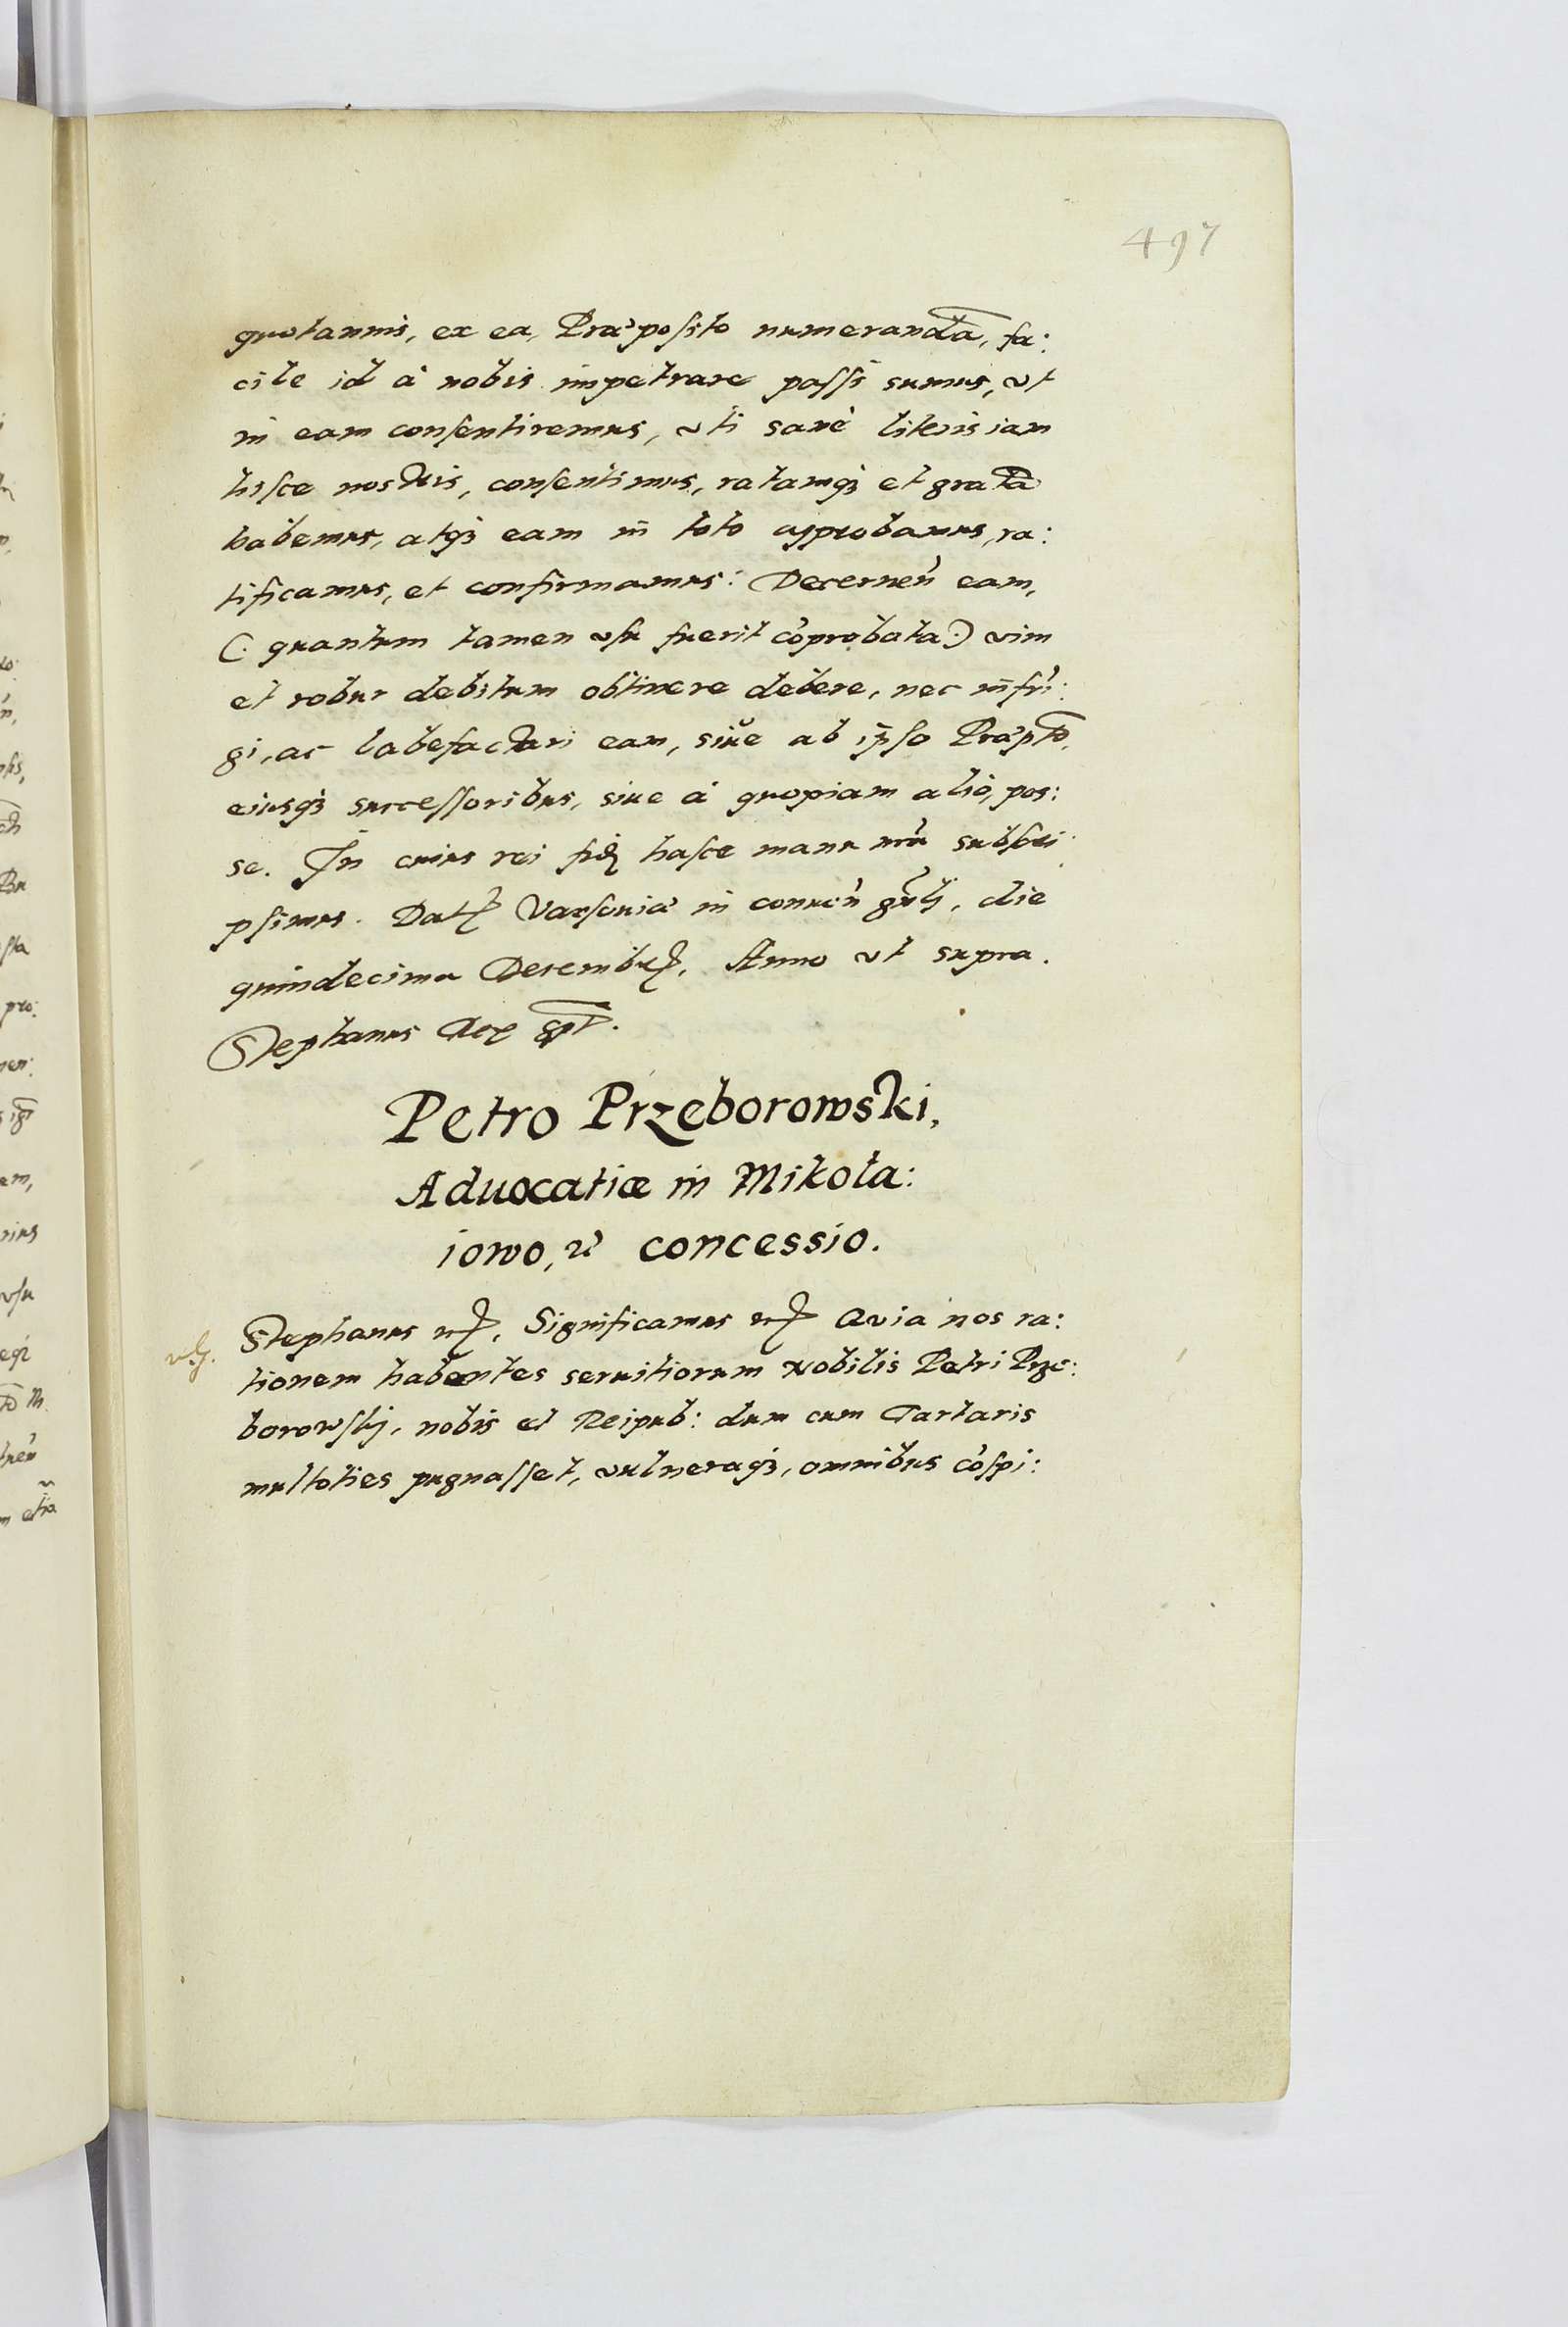 497
quotannis, ex ea, Præposito numerandã, fa:
cile id à nobis impetrare passi sumus, vt
in eam consentiremus, vti sanè literis iam
hisce nostris, consentimus, ratamq3 et gratã
habemus, atq3 eam in toto approbamus, ra:
tificamus, et confirmamus: Decernen̄ eam,
(: quantum tamen vsu fuerit cõprobata:) vim
et robur debitum obtinere debere, nec infri:
gi, ac labefactari eam, siue ab ipso Præpto,
eiusq3 successoribus, siue à quopiam alio, pos:
se. In cuius rei fid hasce manu nrã subscri
psimus. Dat Varsouiæ in conuen̄ gnlj, die
quindecima Decembr, Anno vt supra.
Stephanus Rex spt.
Petro Przeborowski,
Aduocatiæ in Mikoła:
iowo, concessio.
Stephanus etc, Significamus etc Quia nos ra:
tionem habentes seruitiorum Nobilis Petri Prze:
borowskj, nobis et Reipub: dum cum Tartaris
multoties pugnasset, vulneraq3, omnibus cõspi: